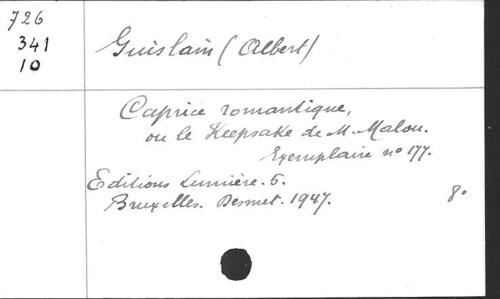 726
341
10
Guislain (Albert)
Caprice romantique,
ou le Keepsake de M. Malou.
Exemplaire no 177.
Editions Lumière. 5.
Bruxelles. Desmet. 1947. 8o